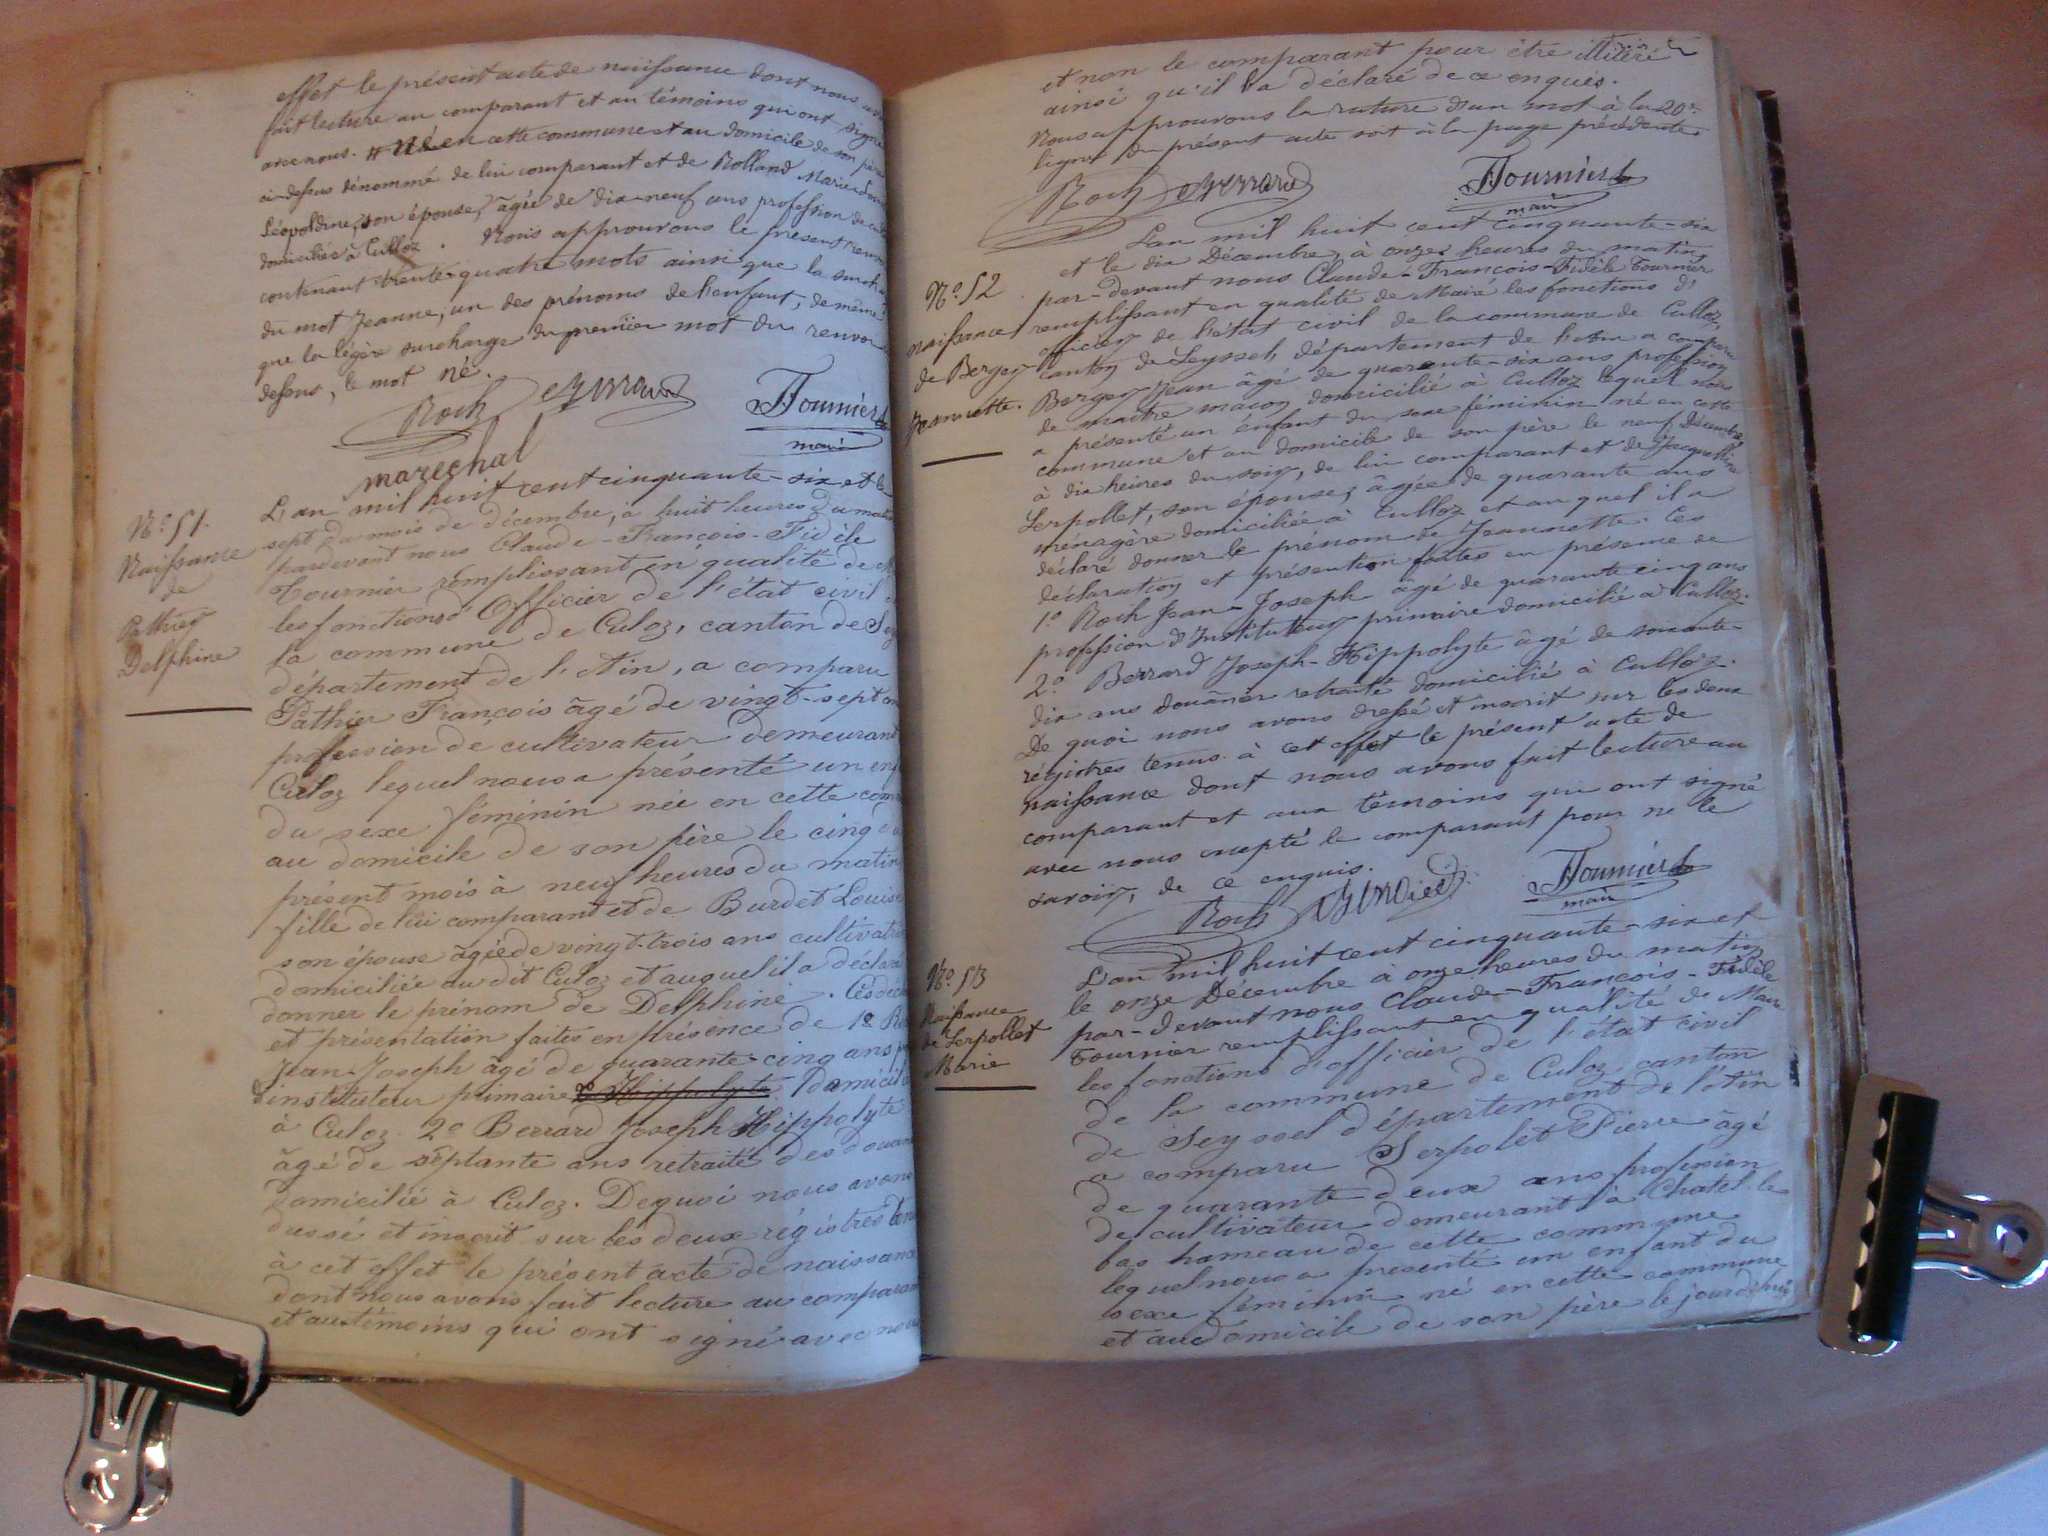 effet le présent acte de naissance dont nous
fait lecture au comparant et au témoins qui ont signé
avec nous. # Né en cette commune et au domicile de son père
ci-dessus dénommé de lui comparant et de Rolland Marie
Léopoldine, son épouse, âgée de dix-neuf ans profession de
domiciliés à Culloz. Nous approuvons le présent renvoi
contenant trente-quatre mots ainsi que la surch
du mot Jeanne, un des prénoms de l'enfant, de même
que la légère surcharge du premier mot du renvoi
dessus, le mot né.
Roch Berrard Fournier
maire
marechal
N° 51.
Naissance
de
Pathier
Delphine
L'an mil huit cent cinquante-six et le
sept du mois de décembre, à huit heures du matin
pardevant nous Claude-François-Fidèle
Tournier remplissant en qualité de
les fonctions d'Officier de l'état civil
la commune de Culoz, canton de Sey
département de l'Ain, a comparu
Pathier François âgé de vingt-sept ans
profession de cultivateur demeurant
Culoz lequel nous a présenté un enf
du sexe féminin née en cette com
au domicile de son père le cinq du
présent mois à neuf heures du matin
fille de lui comparant et de Burdet Louise
son épouse âgée de vingt-trois ans cultivatri
domiciliée au dit Culoz et auquel il a déclaré
donner le prénom de Delphine. Ces décl
et présentation faites en présence de 1° Ro
Jean-Joseph âgé de quarante-cinq ans p
d'instituteur primaire 2° Hippolyte domicilié
à Culoz. 2° Berrard Joseph Hippolyte
âgé de septante ans retraité des douan
domicilié à Culoz. De quoi nous avons
dressé et inscrit sur les deux régistres ten
à cet effet le présent acte de naissance
dont nous avons fait lecture au comparant
et aux témoins qui ont signé avec nous
et non le comparant pour être illitéré
ainsi qu'il l'a déclaré de ce enquis.
Nous approuvons la rature d'un mot à la 20e
ligne du présent acte soit à la page précédente.
Roch Berrard Fournier
maire
N° 52
naissance
de Berger
Jeannette.
L'an mil huit cent cinquante-six
et le dix Décembre, à onze heures du matin,
par-devant nous Claude-François-Fidèle Tournier
remplissant en qualité de Maire les fonctions d'
officier de l'état civil de la commune de Culloz,
canton de Seyssel, département de l'ain a comparu
Berger Jean âgé de quarante-six ans profession
de maître maçon domicilié à Culloz lequel nous
a présenté un enfant du sexe féminin né en cette
commune et au domicile de son père le neuf Décembre
à dix heures du soir, de lui comparant et de Jacqueline
Serpollet, son épouse, âgée de quarante ans
ménagère domiciliée à Culloz et auquel il a
déclaré donner le prénom de Jeannette. Ces
déclaration et présention faites en présence de
1.° Roch Jean-Joseph âgé de quarante cinq ans
profession d'Instituteur primaire domicilié à Culloz.
2.° Berrard Joseph-Hippolyte âgé de soixante-
dix ans douânier retraité domicilié à Culloz.
De quoi nous avons dressé et inscrit sur les deux
régistres tenus à cet effet le présent acte de
naissance dont nous avons fait lecture au
comparant et aux témoins qui ont signé
avec nous excepté le comparant pour ne le
savoir, de ce enquis.
Roch Berrard Fournier
maire
N° 53
Naissance
de Serpollet
Marie
L'an mil huit cent cinquante-six et
le onze Décembre à onze heures du matin
par-devant nous Claude-François-Fidèle
Tournier remplissant en qualité de Maire
les fonctions d'officier de l'état civil
de la commune de Culoz canton
de Seyssel département de l'Ain
a comparu Serpolet Pierre âgé
de quarante-deux ans profession
de cultivateur demeurant à Chatel-le
bas hameau de cette commune
lequel nous a présenté un enfant du
sexe féminin né en cette commune
et au domicile de son père le jour d'hier